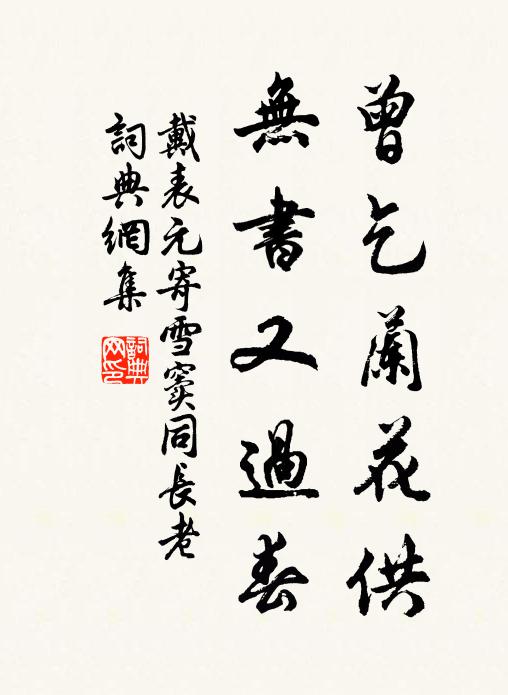 曾乞蘭花供
無書又過春
戴表元寄雪竇同長老
詞典網集
詞典網印